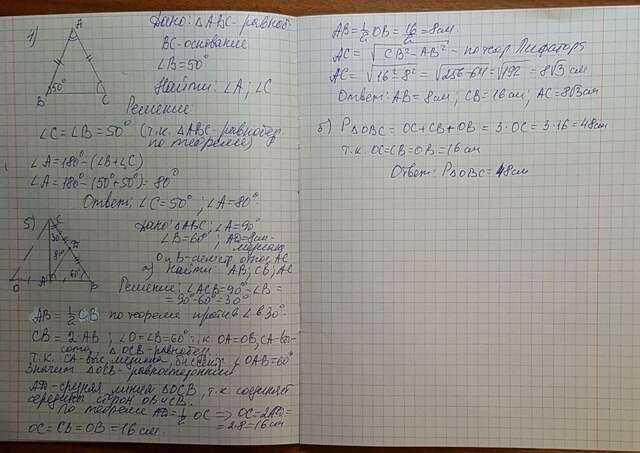 1)
A
B
C
50°
Дано: △ABC-равноб.
BC-основание
∠B=50°
Найти: ∠A; ∠C
Решение
∠C=∠B=50° (т.к. △ABC-равнобер.
по теореме)
∠A=180°-(∠B+∠C)
∠A=180°-(50°+50°)=80°
Ответ: ∠C=50°; ∠A=80°.
5)
C
30°
8см
60°
O
A
B
Дано: △ABC; ∠A=90°
∠B=60°; AD=8см-
медиана
O и B-симет. относ. AC
а) Найти: AB; CB; AC
Решение: ∠ACB=90°-∠B=
=90°-60°=30°
AB=½CB по теореме против ∠ в 30°.
CB=2AB; ∠O=∠B=60° т.к. OA=OB, CA-вы-
сота, △OCB-равнобед.
т.к. CA-выс., медиана, биссект. ∠OAB=60°
Значит △OCB-равносторонний
AD-средняя линия △OCB, т.к. соединяет
середины сторон OB и CB.
По теореме AD=½OC => OC=2AD=
=2·8=16см
OC=CB=OB=16см.
AB=½OB=16/2=8см
AC=√CB²-AB² - по теор Пифагора
AC=√16²-8²=√256-64=√192=8√3см
Ответ: AB=8см; CB=16см; AC=8√3см
б) P△OBC=OC+CB+OB=3·OC=3·16=48см
т.к. OC=CB=OB=16см
Ответ: P△OBC=48см